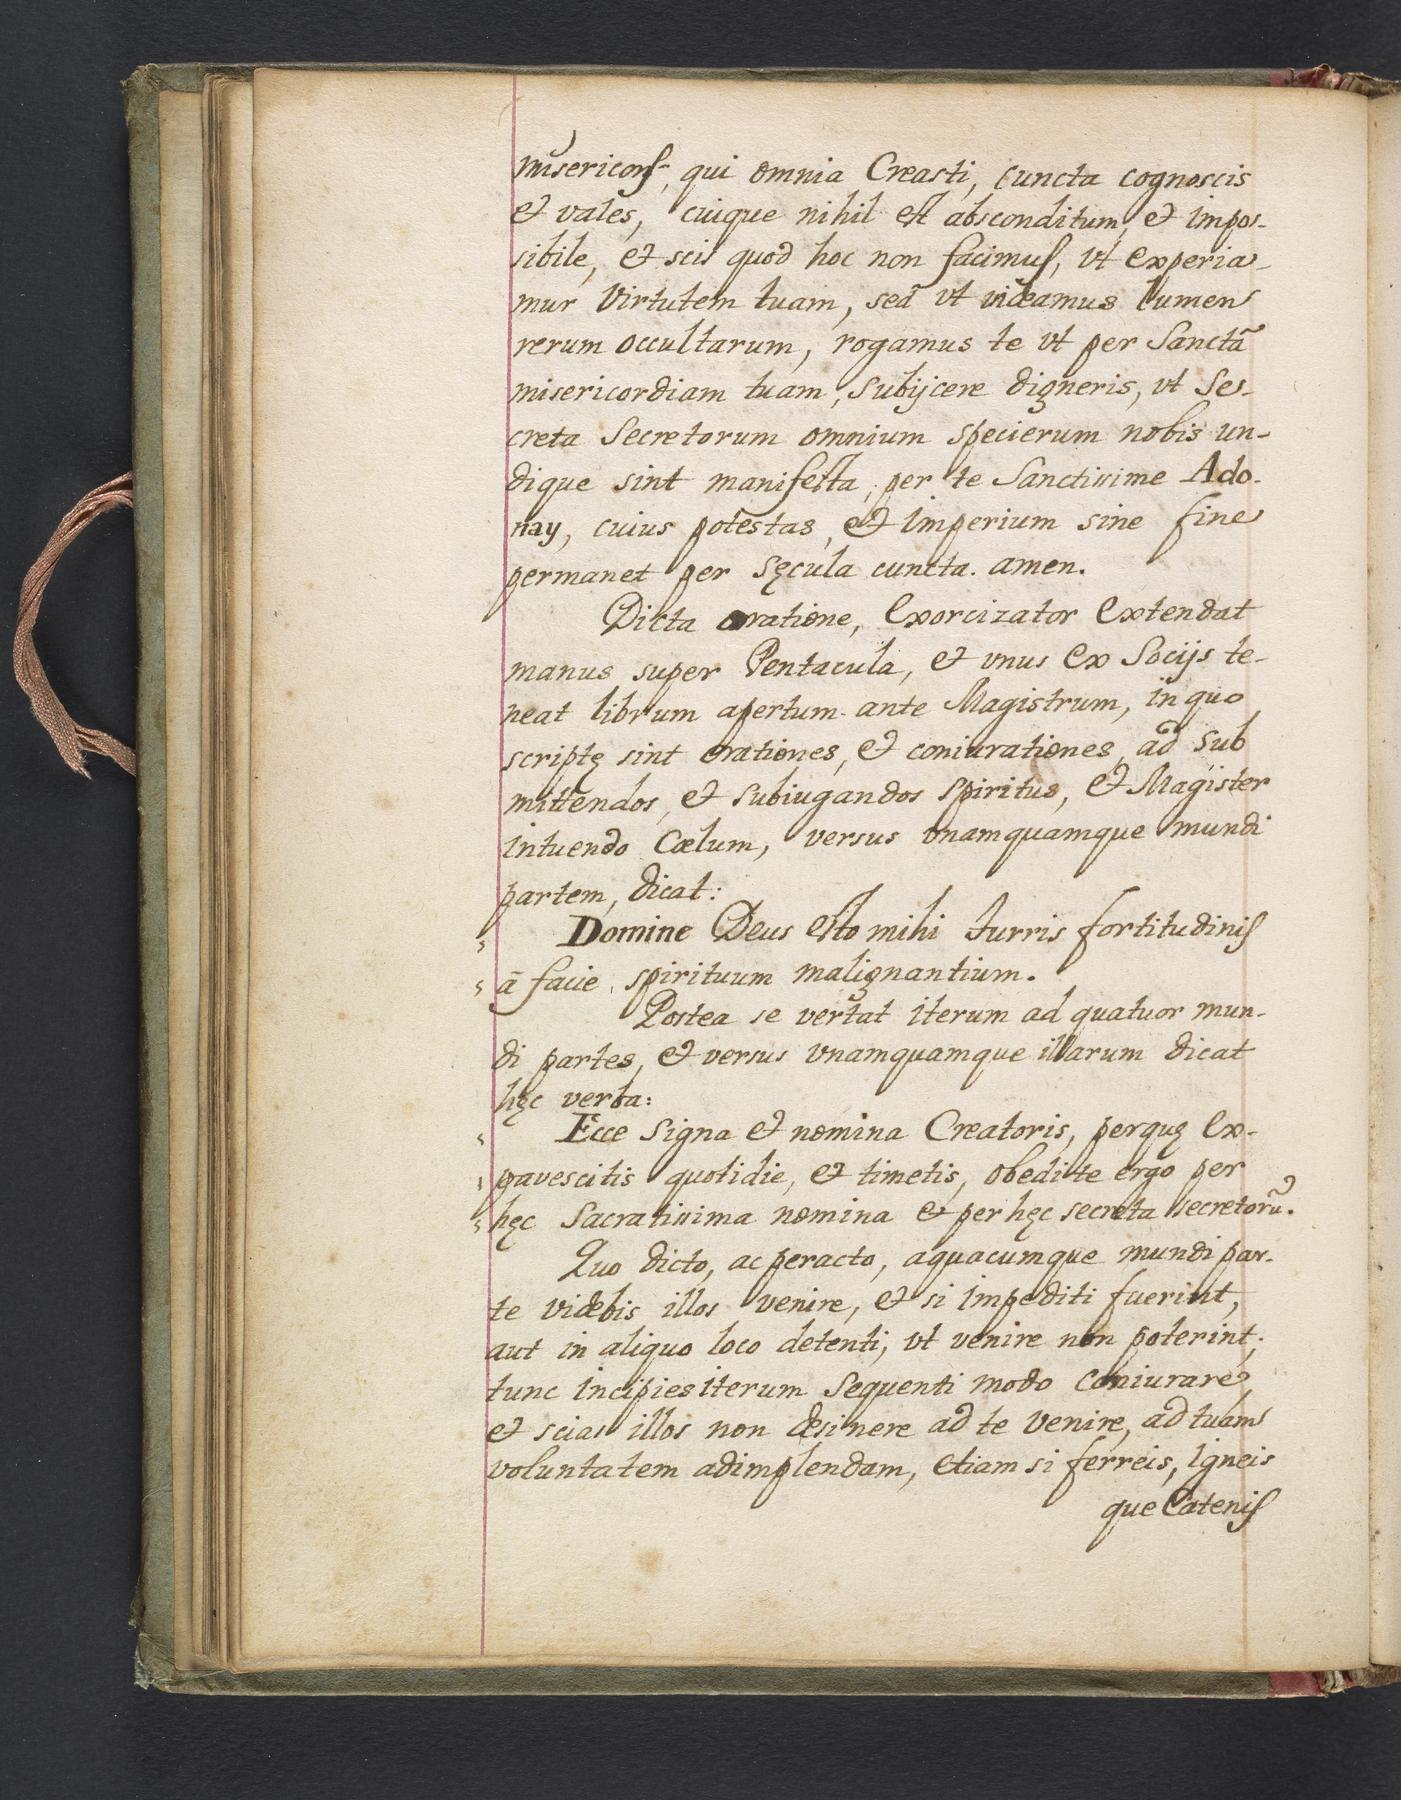 misericors, qui omnia Creasti, cuncta cognoscis
et vales, cuique nihil est absconditum, et impos-
sibile, et scis quod hoc non facimus, vt experia-
mur virtutem tuam, sed vt videamus lumen
rerum occultarum, rogamus te vt per Sanctā
misericordiam tuam, Subijcere digneris, vt Se-
creta Secretorum omnium specierum nobis un-
dique sint manifesta, per te Sanctissime Ado-
nay, cuius potestas, et imperium sine fine
permanet per sęcula cuncta. amen.
Dicta oratione, Exorcizator Extendat
manus super Pentacula, et vnus ex Socijs te-
neat librum apertum ante Magistrum, in quo
scriptę sint orationes, et coniurationes, ad sub
mittendos, et subiugandos spiritus, et Magister
intuendo Cœlum, versus vnamquamque mundi
partem, dicat:
Domine Deus esto mihi turris fortitudinis
ā facie spirituum malignantium.
Postea se vertat iterum ad quatuor mun-
di partes, et versus vnamquamque illarum dicat
hęc verba:
Ecce Signa et nomina Creatoris, perquę Ex-
pavescitis quotidie, et timetis, obedite ergo per
hęc Sacratissima nomina et per hęc secreta secretorū.
Quo dicto, ac peracto, aquacumque mundi par-
te videbis illos venire, et si impediti fuerint,
aut in aliquo loco detenti, vt venire non poterint;
tunc incipies iterum Sequenti modo Coniurare,
et scias illos non desinere ad te venire, ad tuam
voluntatem adimplendam, etiam si ferreis, igneis
que Catenis